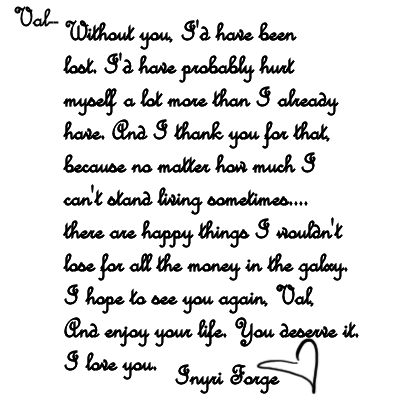 Val-
Without you, I'd have been
lost. I'd have probably hurt
myself a lot more than I already
have. And I thank you for that,
because no matter how much I
can't stand living sometimes....
there are happy things I wouldn't
lose for all the money in the galaxy.
I hope to see you again, Val,
And enjoy your life. You deserve it.
I love you.
Inyri Forge